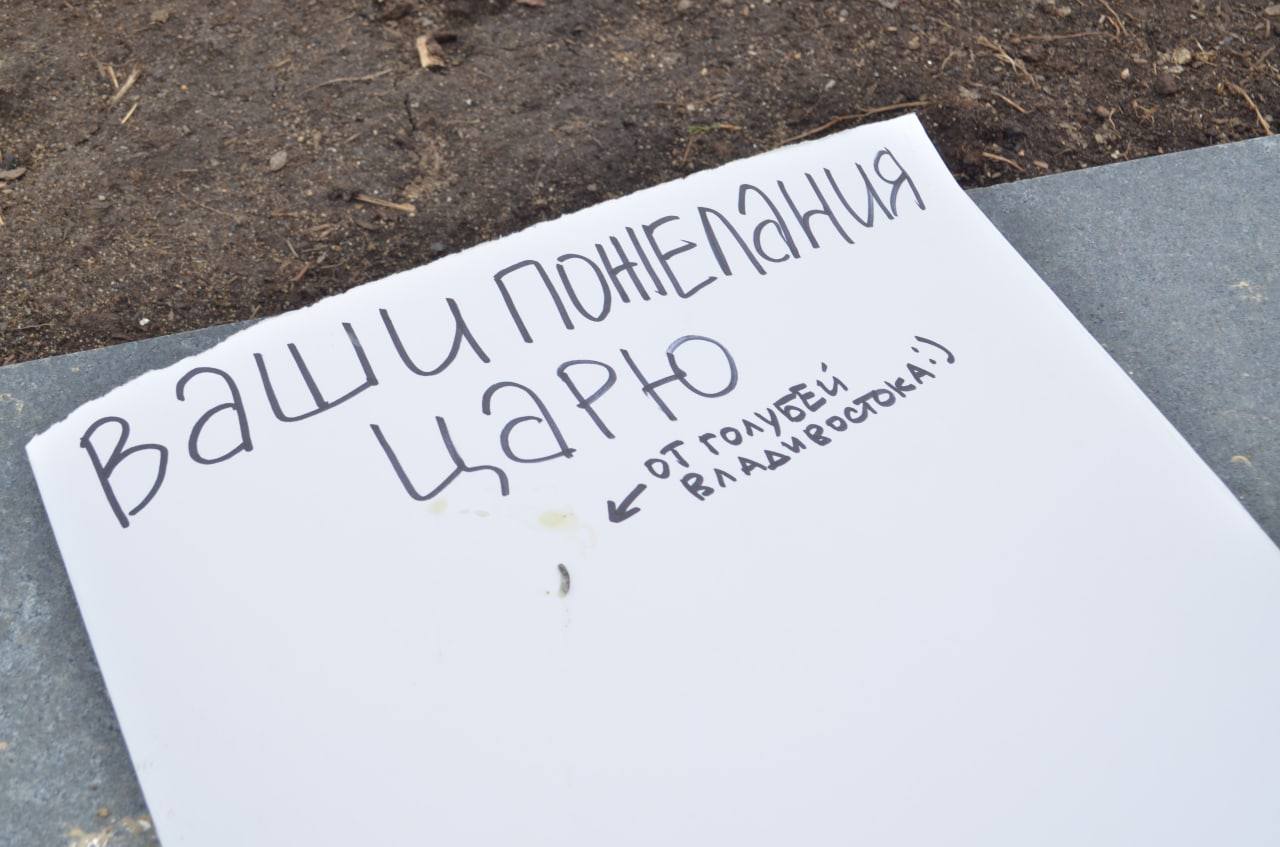 ВАШИ ПОЖЕЛАНИЯ
ЦАРЮ
ОТ ГОЛУБЕЙ
ВЛАДИВОСТОКА! :)